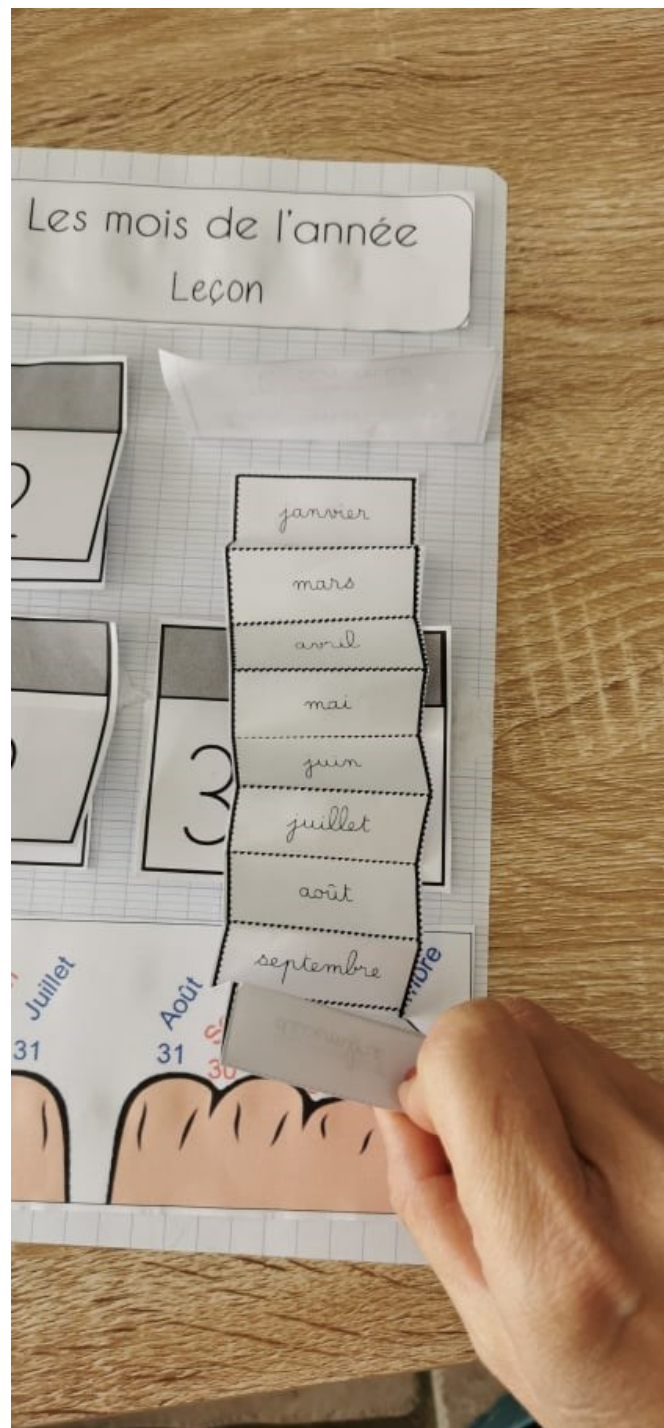 Les mois de l'année
Leçon
janvier
mars
avril
mai
juin
juillet
août
septembre
3
Juillet
31
Août
31
30